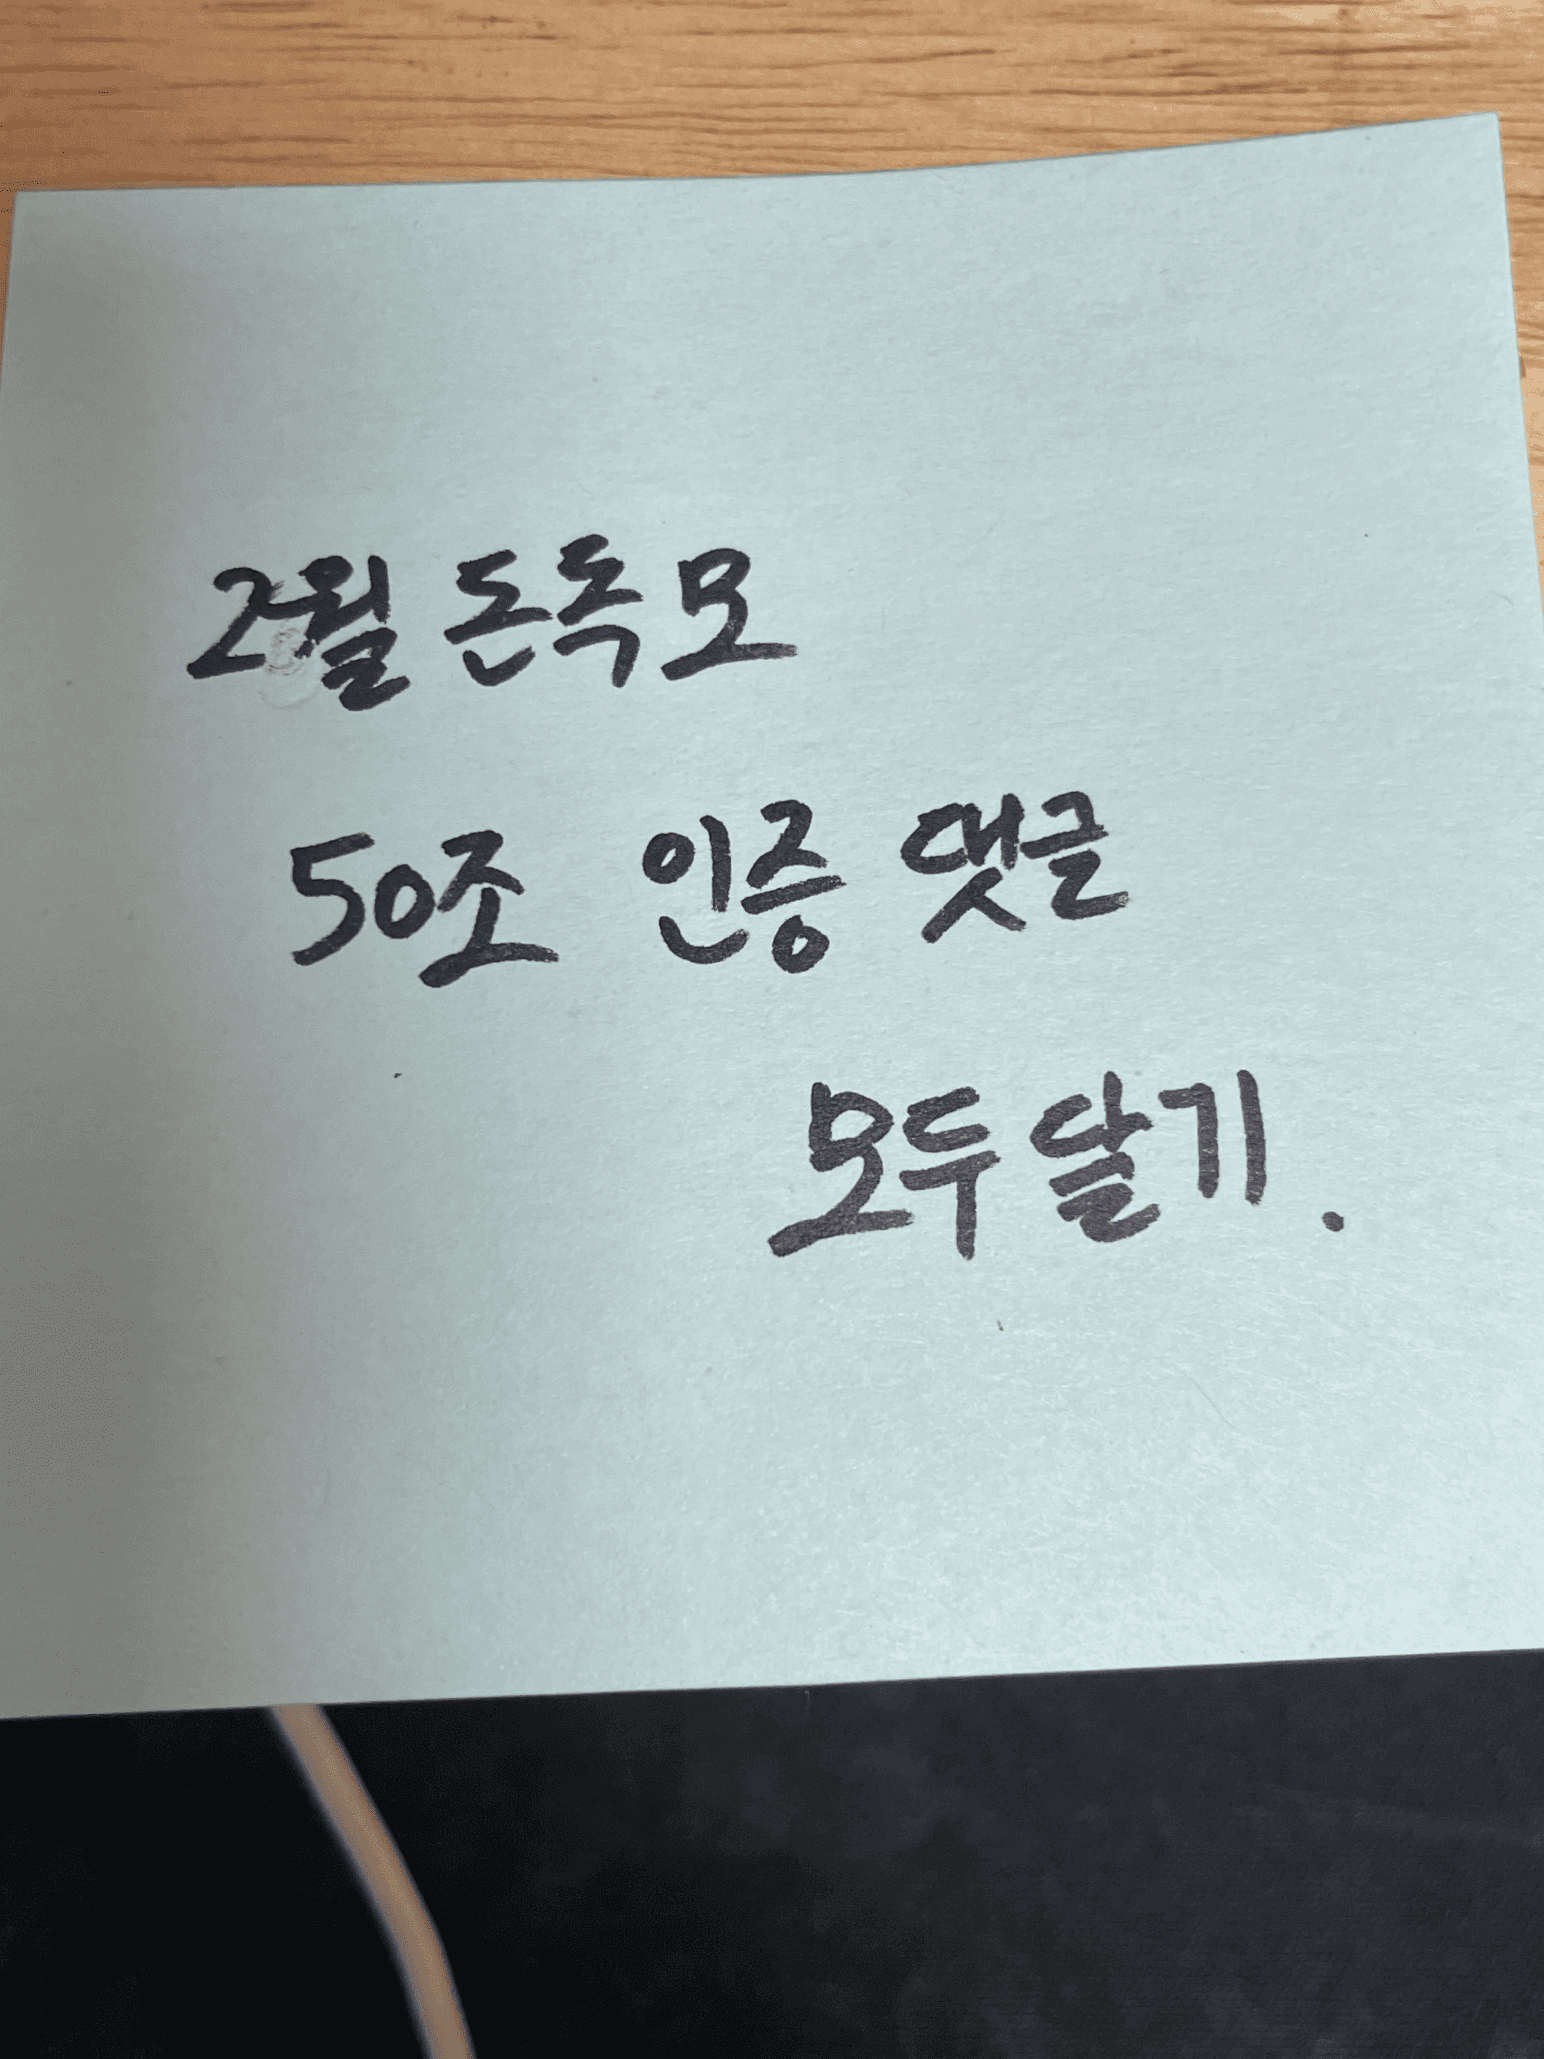 2월 돈독모
50조 인증 댓글
모두 달기.